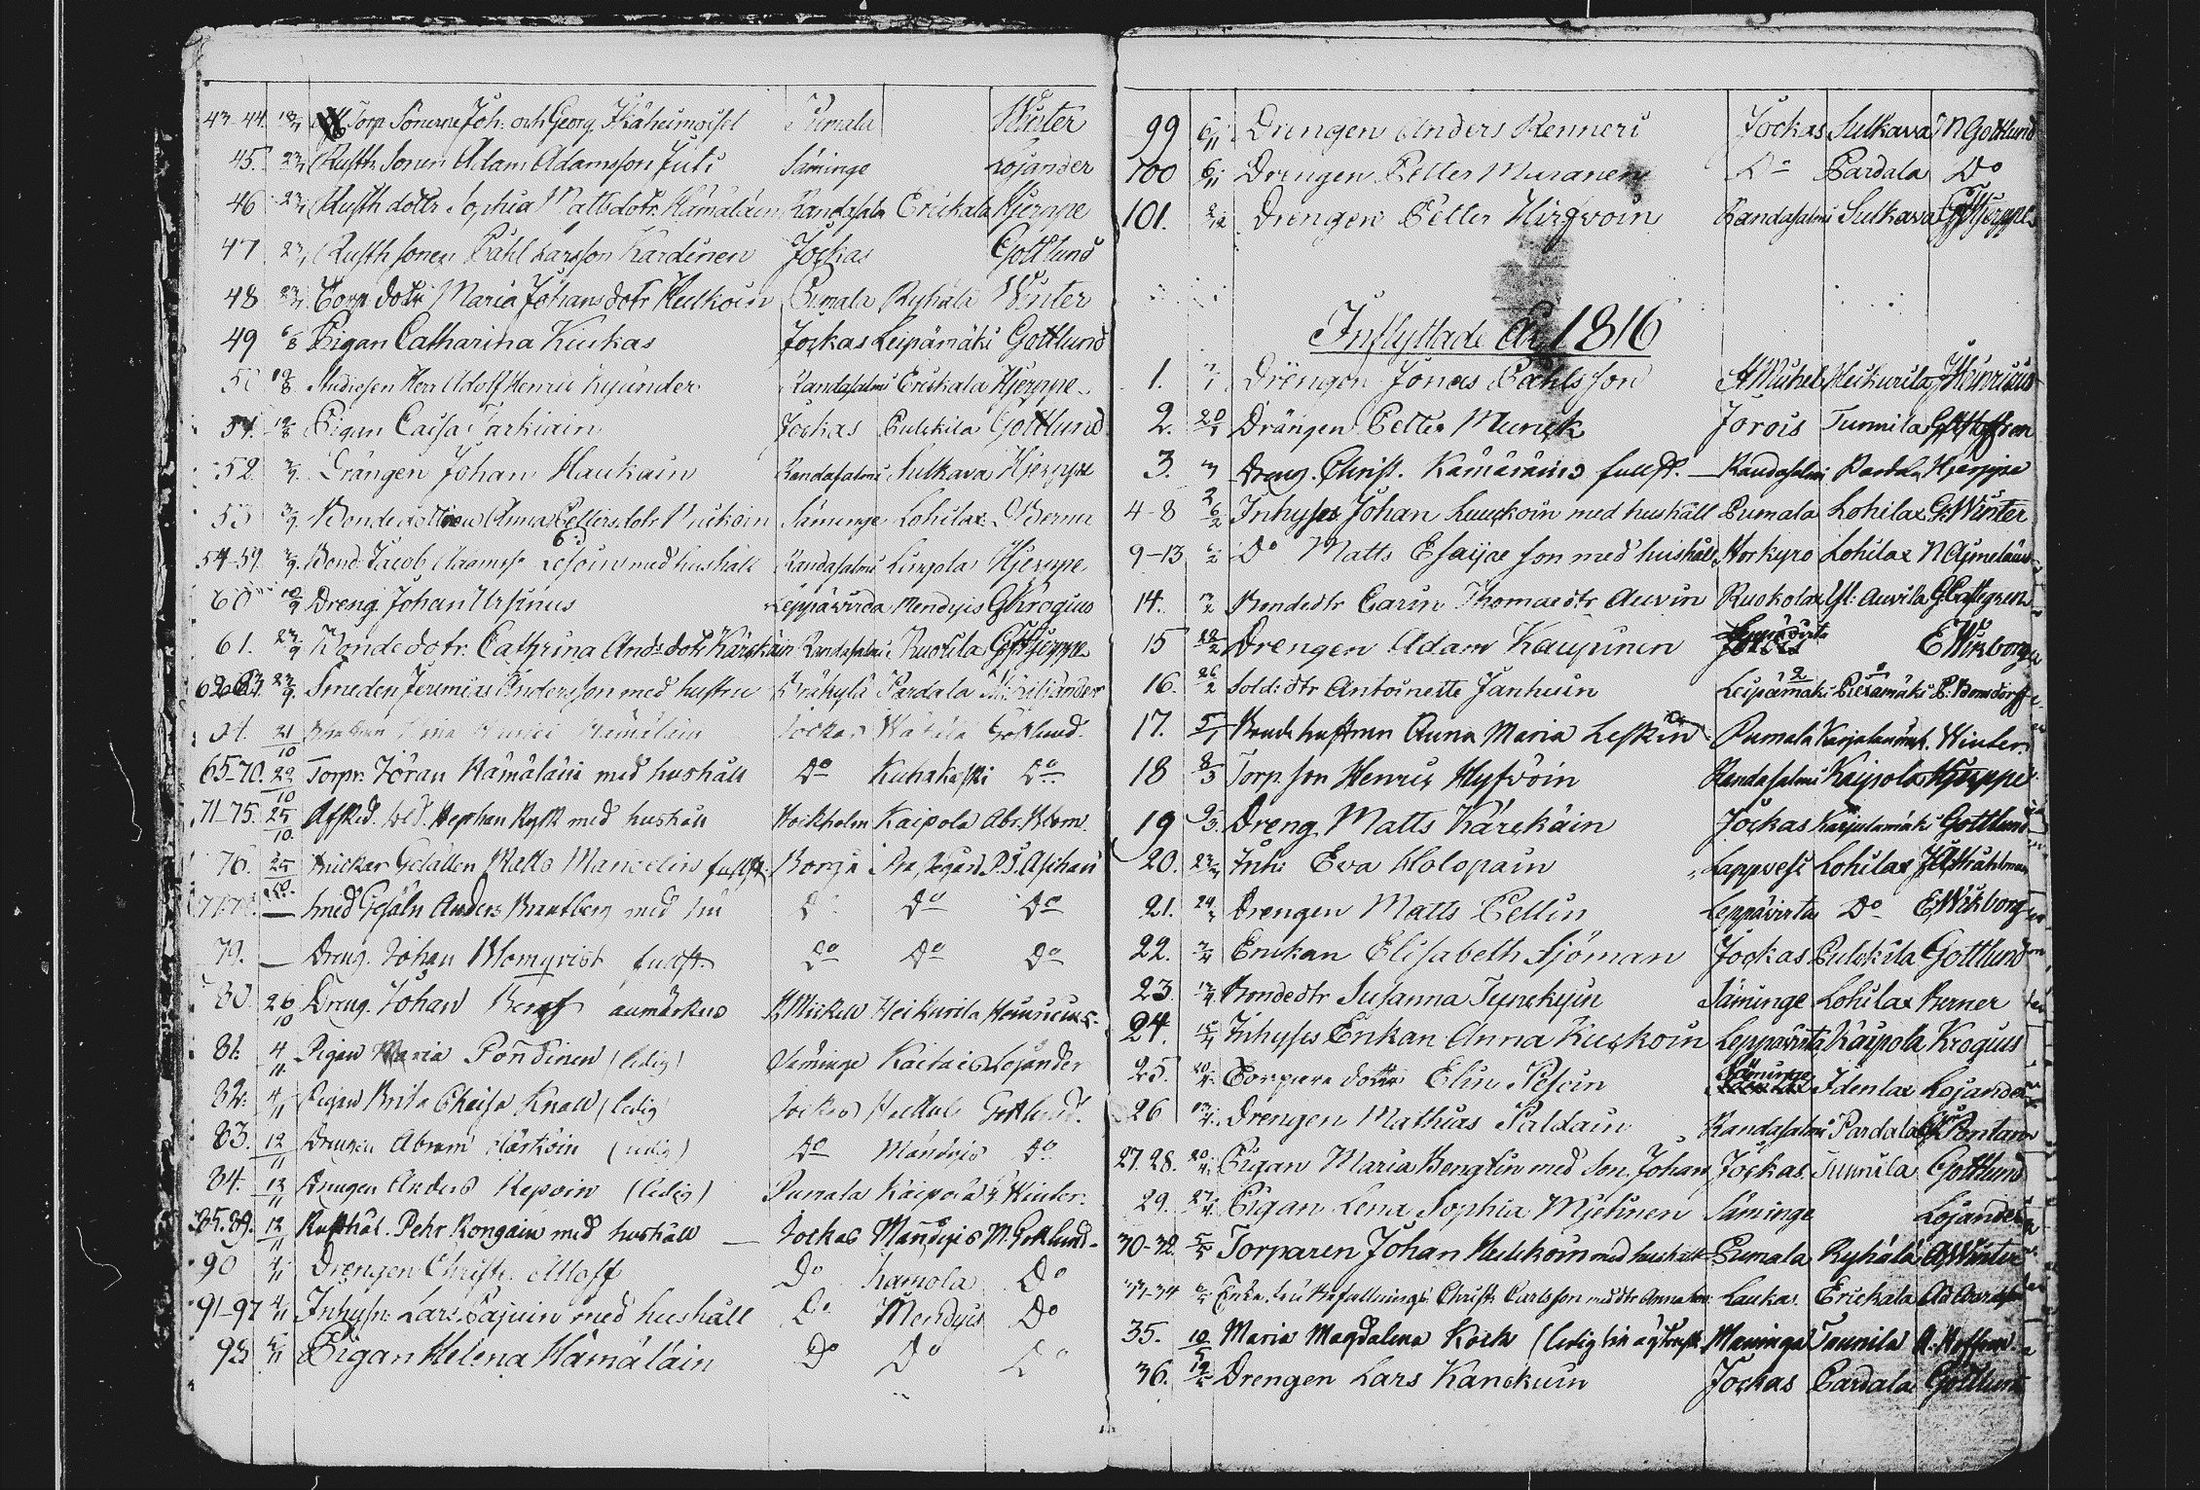 43-44. Torp. Sönerne Joh: och Georg Käheimoisel Pumala Winter
45. 23/7 Rusth Sonen Adam Adamsson Juti Säminge Lojander
46 23/7 Rusth dottr Sophia Mattsdotr Hämäläen Randasalm Erickala Hjerppe
47 23/7 Rusth sonen Påhl Larsson Kärdinen Jockas Gottlund
48 Torp. dotr Maria Johansdotr Heickoin Pumala Ryhälä Winter
49 6/8 Pigan Catharina Kuckas Jockas Leipämäki Gottlund
50 Studiosen Herr Adolf Henric Kyander Randasalmi Erickala Hjerppe
51. Pigan Caisa Tarkiain Jockas Pulckila Gottlund
52. Drängen Johan Haukain Randasalmi Sulkava Hjerppe
53 Bondedottren Anna Pettersdotr Säminge Lohilax Berner
54-59. Bond. Jacob Adamss. Lesoin med hushåll Randasalmi Hjerppe
60 10/9 Dreng Johan Ursinus Leppävirda Mendyis G Krogius
61. 23/9 Bondedotr. Cathrina Ands dotr Kärckäin Randasalmi Ruotila Hjerppe
23/9 Smeden Jeremias Andersson med hustru Bräkylä Pardala
21/10 Hämäläin Jockas Gottlund.
65-70. 22/10 Torpr. Jöran Hämäläin med hushåll Do Kuhakoski Do
71-75. 25/10 Afsked. Sold. Stephan Rysk med hushåll Stockholm Kaipola Abr. Blom.
76. 25/10 Snickar Gesällen Matts Mandelin Borgå P.J. Alphan
— Smed Gesäln Anders Brantberg med hu Do Do Do
79. — Dreng. Johan Blomqvist Do Do Do
80. 26/10 Dreng. Johan St Mickel Heikurila Heinricius
81. 4/11 Pigan Maria Pöndinen (ledig) Säminge Kaitais Lojander
82. 4/11 Pigan Brita Chaisa Knall (ledig) Jockas Gottlund.
83. 12/11 Drengen Abram Härköin (ledig) Do Mändyis Do
84. 12/11 Drengen Anders Repoin (ledig) Pumala Kaipola Winter.
85.89. 12/11 Rusthål. Pehr Rongain med hushåll — Jockas Mändyis M. Gottlund
90 Drengen Christ. Do Kamola Do
91-97 Inhysn. Lars Pajuin med hushåll Do Mendyis Do
98 Pigan Helena Hämäläin Do Do Do
99 6/11 Drengen Anders Renneri Jockas Sulkava M Gottlund
100 6/11 Drengen Petter Muranen Do Pardala Do
101. Drengen Petter Hirfvoin Randasalmi Sulkava Hjerppe
Inflyttade År 1816
1. Drengen Jonas Påhlsson St Michel Heikurila Heinricius
2. 20/1 Drängen Petter Murick Jorois Tunnila Hoffren
3. Dreng. Christ. Kämäräins Randasalmi Pardala Hjerppe
4-8 Inhyses Johan Luuckoin med hushåll Pumala Lohilax G. Winter
9-13 Do Matts Esaijæ son med hushåll Storkyro Lohilax N Aimelæus
14. Bondedtr Carin Thomædtr Auvin Ruokolax Auvila G. Castegren
15 Drengen Adam Kaupinen Leppävirta E Wikborg
16. 26/2 Soldtdtr Antoinette Janhuin Leipämäki Pieksämäki Bonsdorff
17. Bonde hustrun Anna Maria Leskin Pumala Winter
18 8/3 Torp. son Henric Hyfvöin Randasalmi Kaipola Hjerppe
19 9/3. Dreng Matts Kärckäin Jockas Karjalamäki Gottlund
20. Inh: Eva Holopain Lappvesi Lohilax
21. Drengen Matts Pellin Leppävirta Do E Wikborg
22. Enkan Elisabeth Sjöman Jockas Pulckila Gottlund
23. Bondedtr Susanna Tynckyin Säminge Lohilax Berner
24. Inhyses Enkan Anna Kuckoin Leppävirta Kaipola Krogius
25. Torpare dottr Elin Pesoin Säminge Idenlax Lojander
26 Drengen Mathias Paldain Randasalmi Pardala Pontan
27.28. Pigan Maria Bengtin med Son. Johan Jockas. Tunnila Gottlund
29. 27/4. Pigan Lena Sophia Miettinen Säminge Lojander
30-32. Torparen Johan Heickoin med hushåll Pumala Ryhälä Winter
33-34 Christ. Carlsson med dtr Anna Laukas. Erickala
35. 10/5 Maria Magdalena Kock (ledig Maninga Tunnila A. Hoffren
36. 12/5 Drengen Lars Kanckuin Jockas Pardala Gottlund